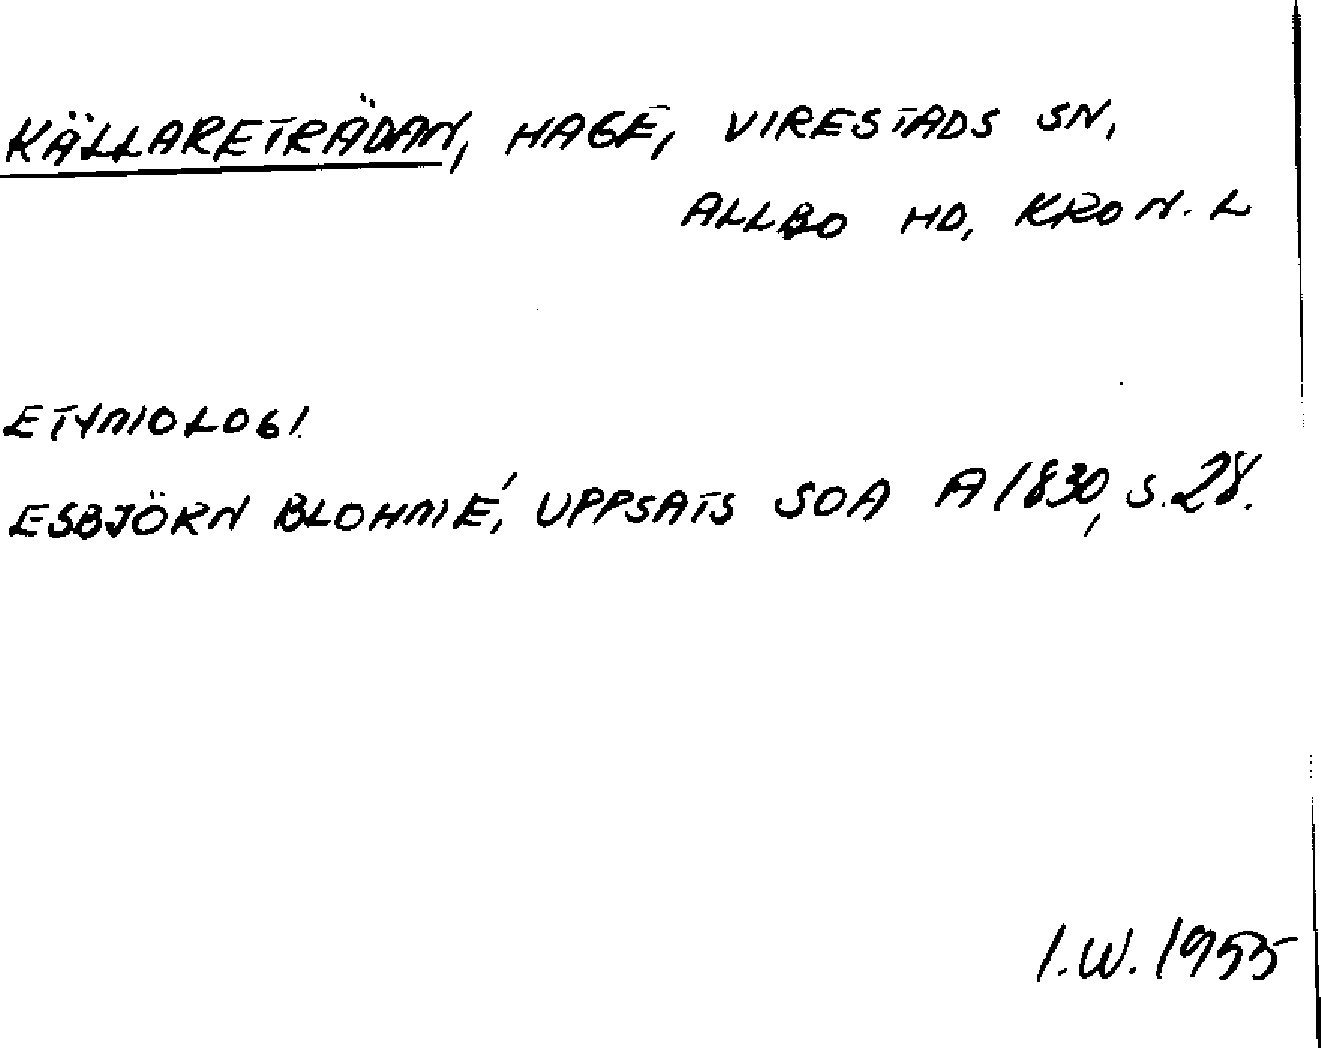 KÄLLARETRÄDAN, HAGE, VIRESTADS SN,
ALLBO HD, KRON. L
ETYMOLOGI
ESBJÖRN BLOHMÉ, UPPSATS SOA A 1830, S. 28.
I.W. 1955